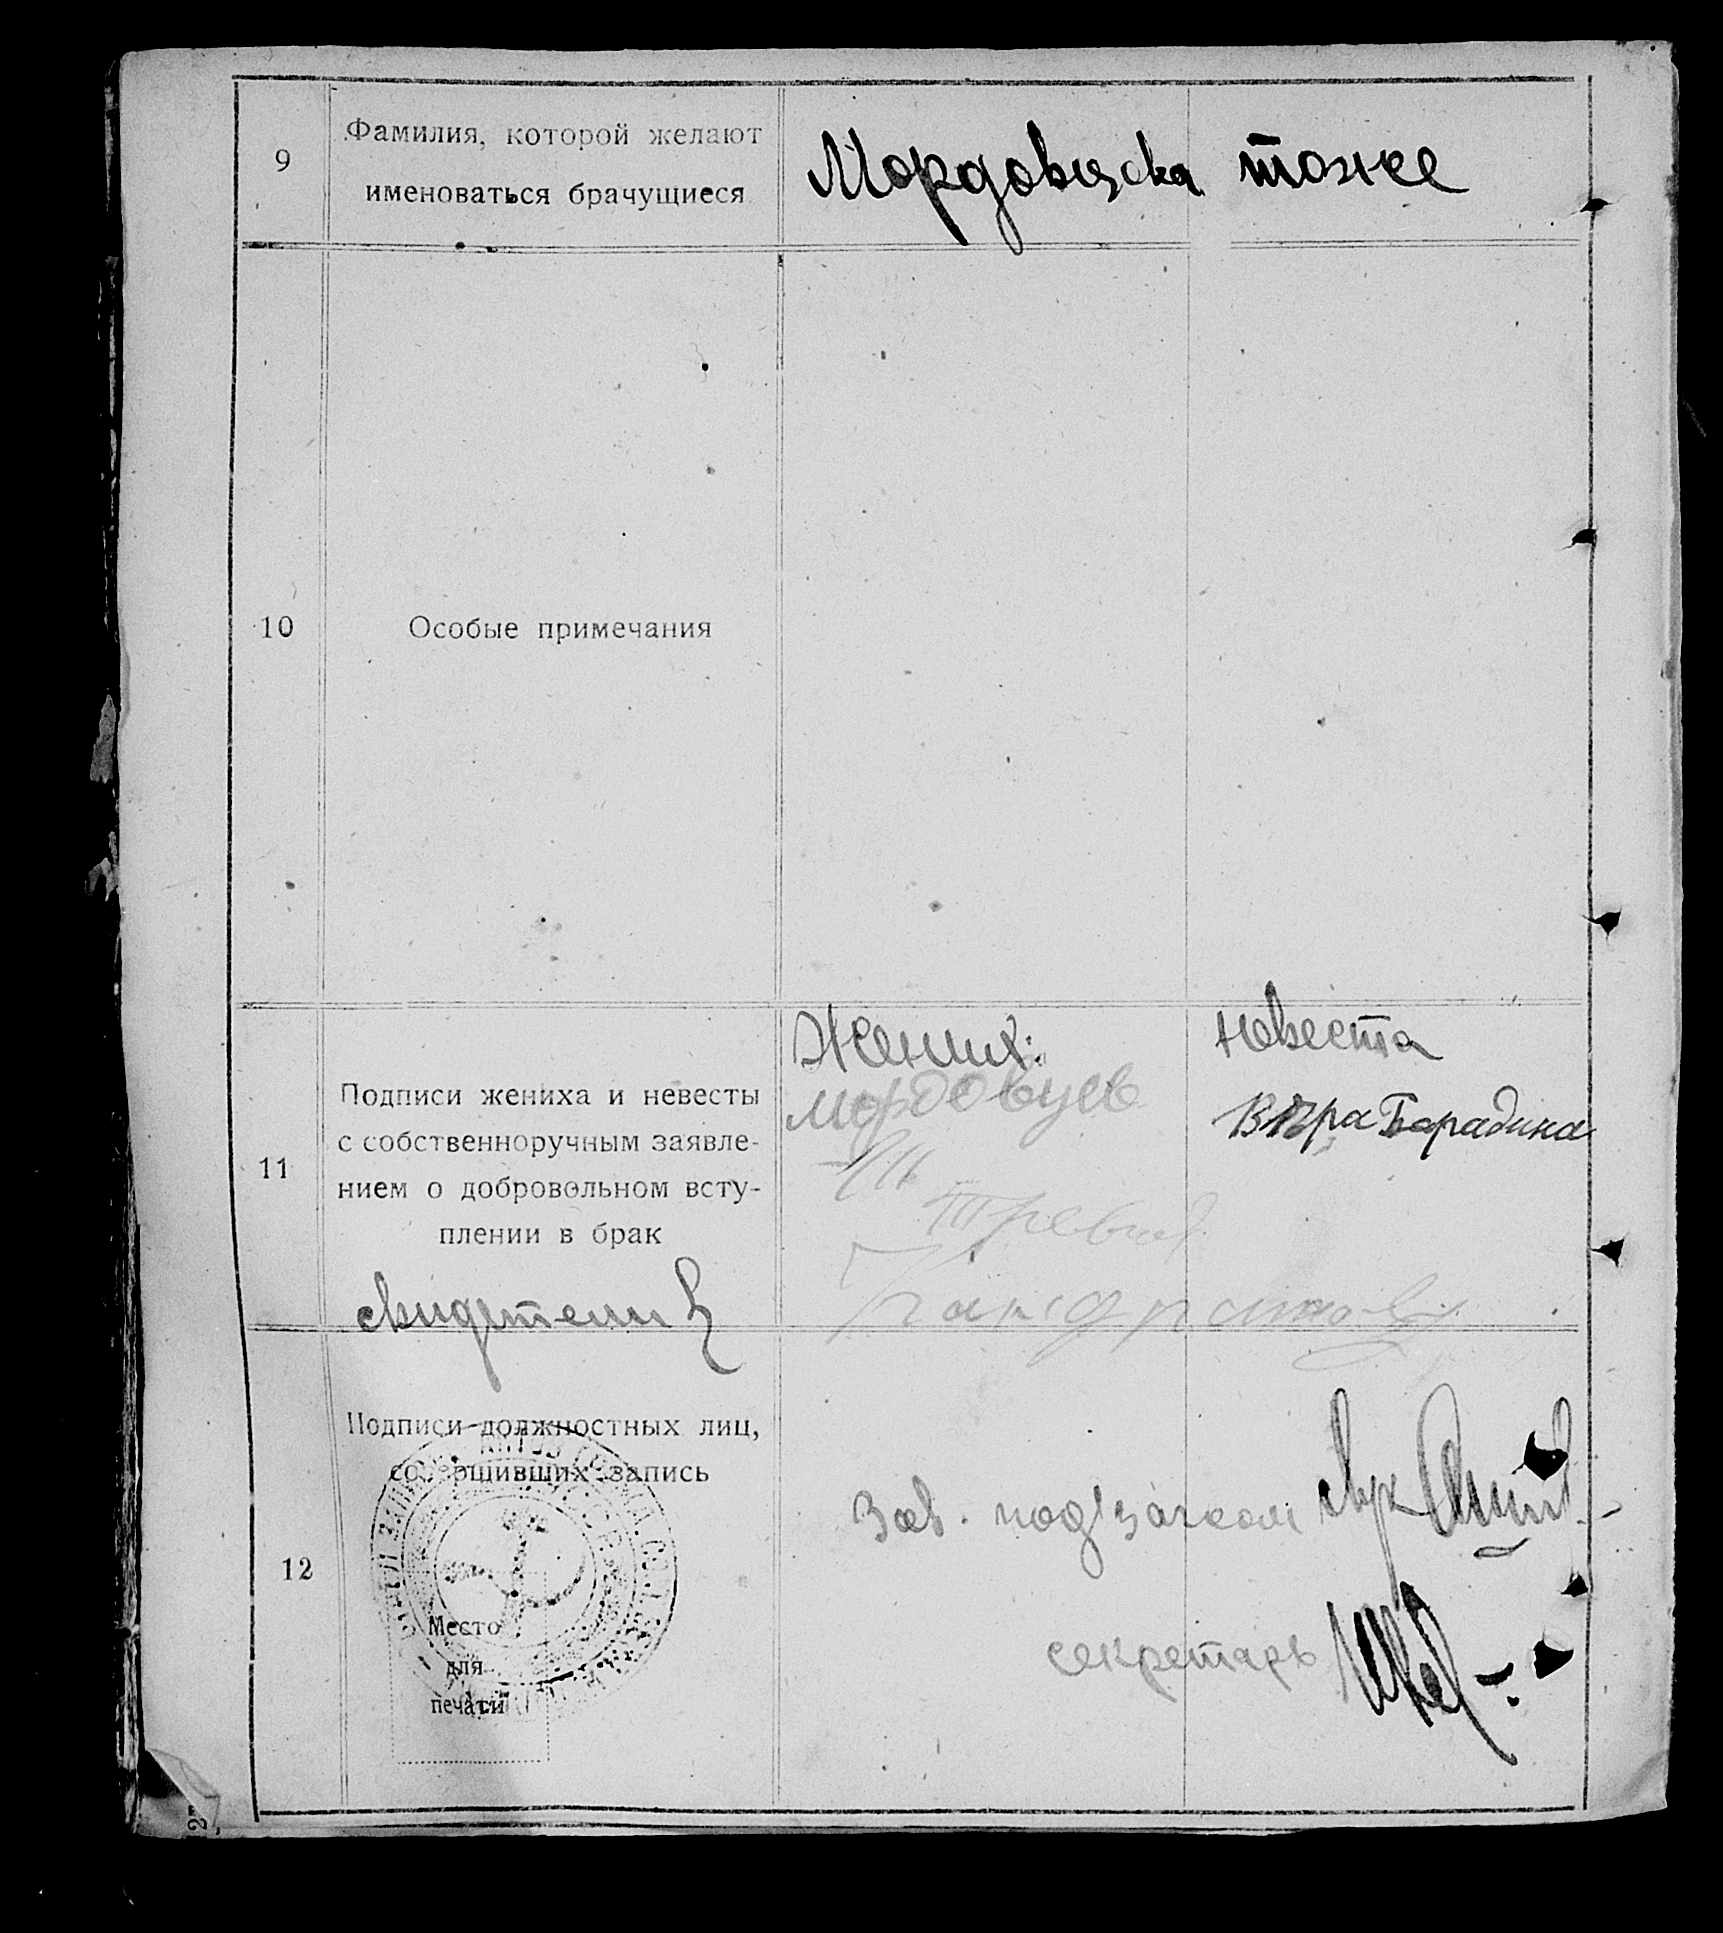 9
Фамилия, которой желают
именоваться брачущиеся
тоже
10
Особые примечания
11
Подписи жениха и невесты
с собственноручным заявле-
нием о добровольном всту-
плении в брак
Жених:
Мордовцев
Невеста
Вѣра Барадина
свидетели
12
Подписи должностных лиц,
совершивших запись
Место
для
печати
Зав. подзагсом
секретарь